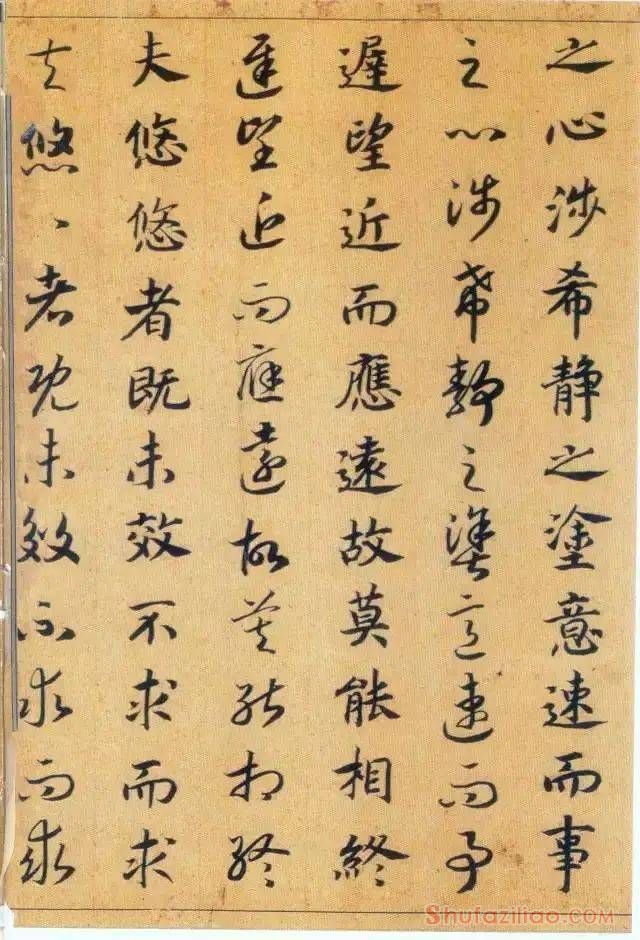 之心涉希静之塗意速而事
之心涉希静之塗意速而事
遲望近而應遠故莫能相終
遲望近而應遠故莫能相終
夫悠悠者既未效不求而求
夫悠〻者既未效不求而求
Shufaziliao.COM